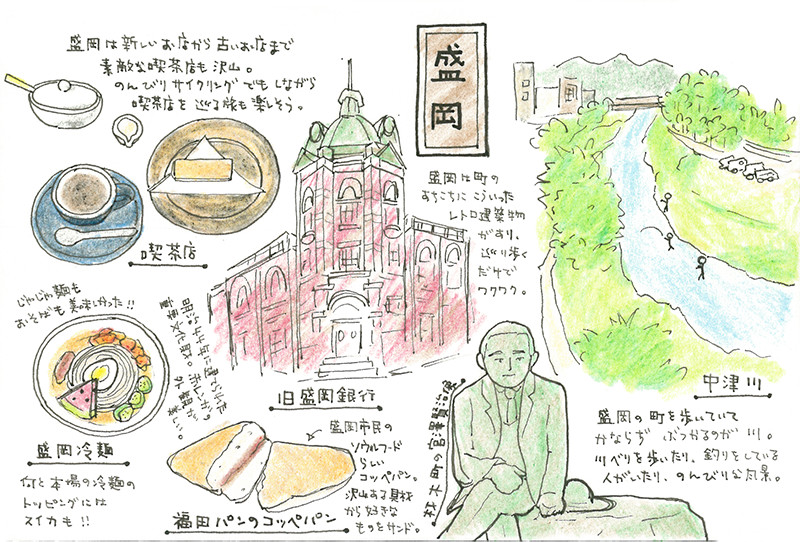 盛岡は新しいお店から古いお店まで
素敵な喫茶店も沢山。
のんびりサイクリングでもしながら
喫茶店を巡る旅も楽しそう。
喫茶店
盛岡
盛岡は町の
あちこちにこういった
レトロ建築物
があり、
巡り歩く
だけで
ワクワク。
じゃじゃ麺も
おそばも美味しかった!!
盛岡冷麺
何と本場の冷麺の
トッピングには
スイカも!!
明治44年に建てられた
重要文化財。赤レンガの
外観が美しい。
旧盛岡銀行
盛岡市民の
ソウルフード
らしい
コッペパン。
沢山ある具材
から好きな
ものをサンド。
福田パンのコッペパン
材木町の宮澤賢治像
中津川
盛岡の町を歩いていて
かならずぶつかるのが川。
川べりを歩いたり、釣りをしている
人がいたり、のんびりな風景。